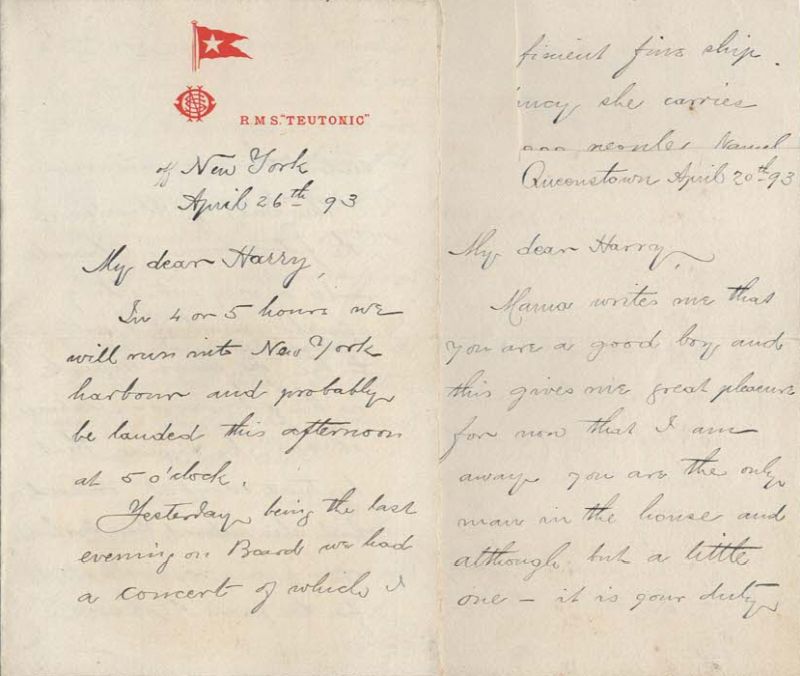 R M S. "TEUTONIC"
off New York
April 26th 93
My dear Harry,
In 4 or 5 hours we
will run into New York
harbour and probably
be landed this afternoon
at 5 o'clock.
Yesterday, being the last
evening on Board we had
a concert of which I
fine ship.
she carries
people
Queenstown April 20th 93
My dear Harry,
Mama writes me that
you are a good boy and
this gives me great pleasure
for now that I am
away you are the only
man in the house and
although but a little
one – it is your duty